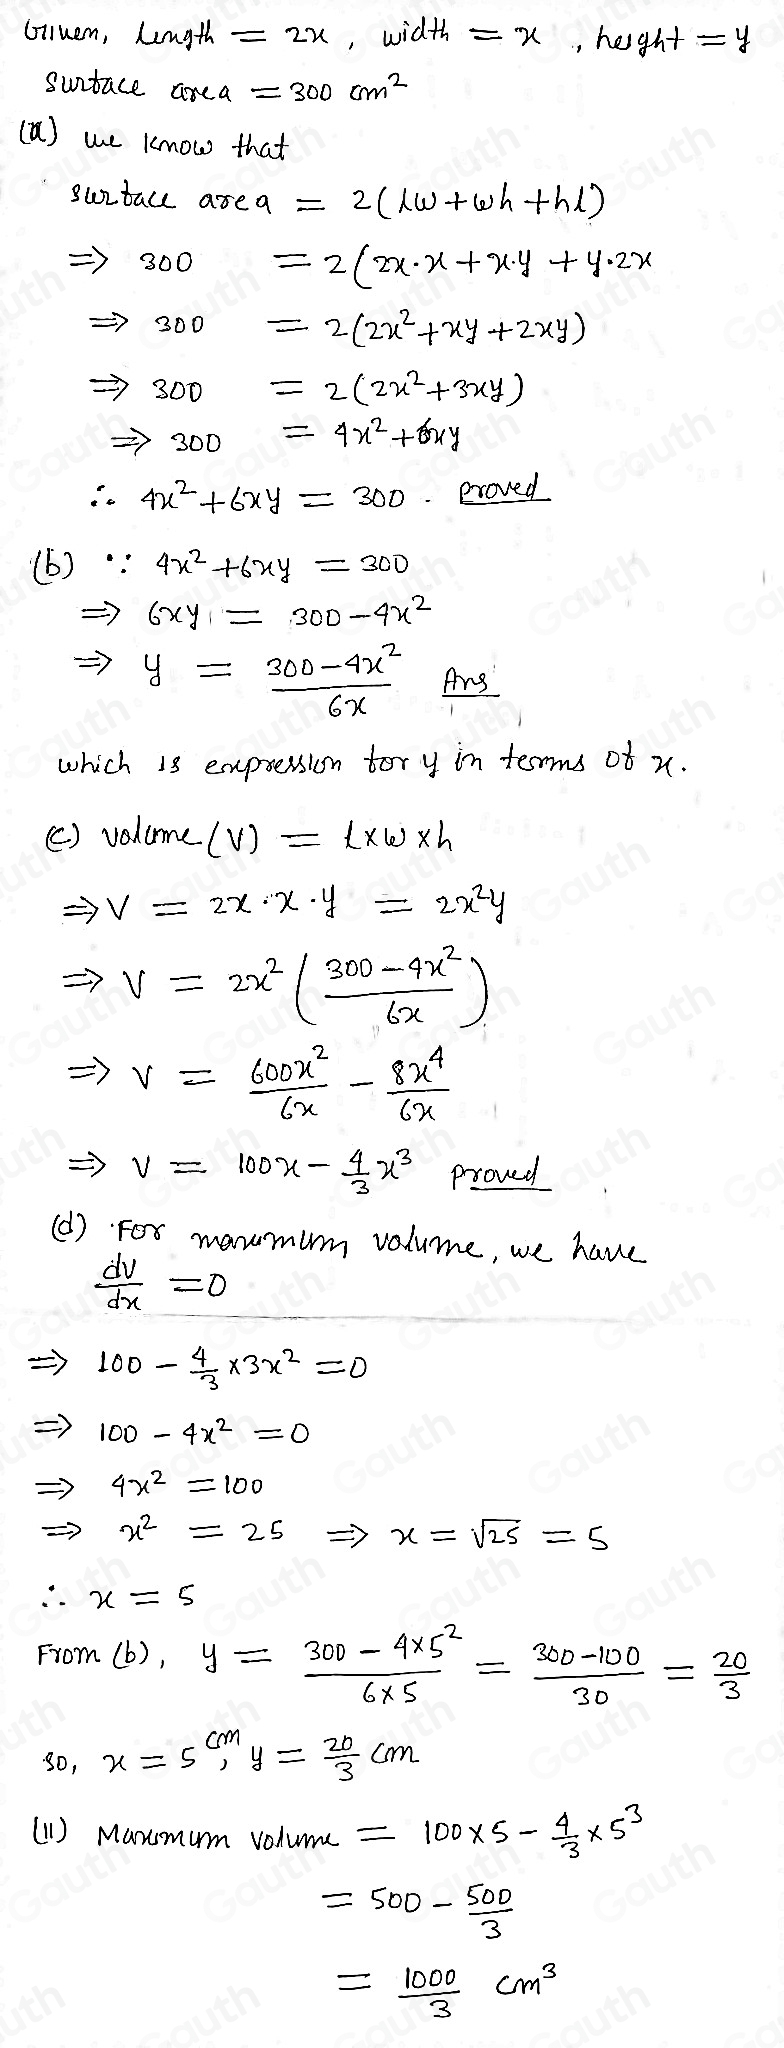 Given, length = 2x, width = x, height = y
surface area = 300 cm²
(a) we know that
surface area = 2(lw+wh+hl)
⇒ 300 = 2(2x·x + x·y + y·2x
⇒ 300 = 2(2x²+xy+2xy)
⇒ 300 = 2(2x²+3xy)
⇒ 300 = 4x²+6xy
∴ 4x²+6xy = 300. proved
(b) ∵ 4x²+6xy = 300
⇒ 6xy = 300-4x²
⇒ y = (300-4x²)/(6x) Ans
which is expression for y in terms of x.
(c) volume (V) = l×w×h
⇒ V = 2x·x·y = 2x²y
⇒ V = 2x²((300-4x²)/(6x))
⇒ V = 600x²/6x - 8x⁴/6x
⇒ V = 100x - 4/3 x³ proved
(d) For maximum volume, we have
dv/dx = 0
⇒ 100 - 4/3 ×3x² = 0
⇒ 100 - 4x² = 0
⇒ 4x² = 100
⇒ x² = 25 ⇒ x = √25 = 5
∴ x = 5
From (b), y = (300 - 4×5²)/(6×5) = (300-100)/30 = 20/3
so, x = 5 cm, y = 20/3 cm
(ii) Maximum volume = 100×5 - 4/3 ×5³
= 500 - 500/3
= 1000/3 cm³